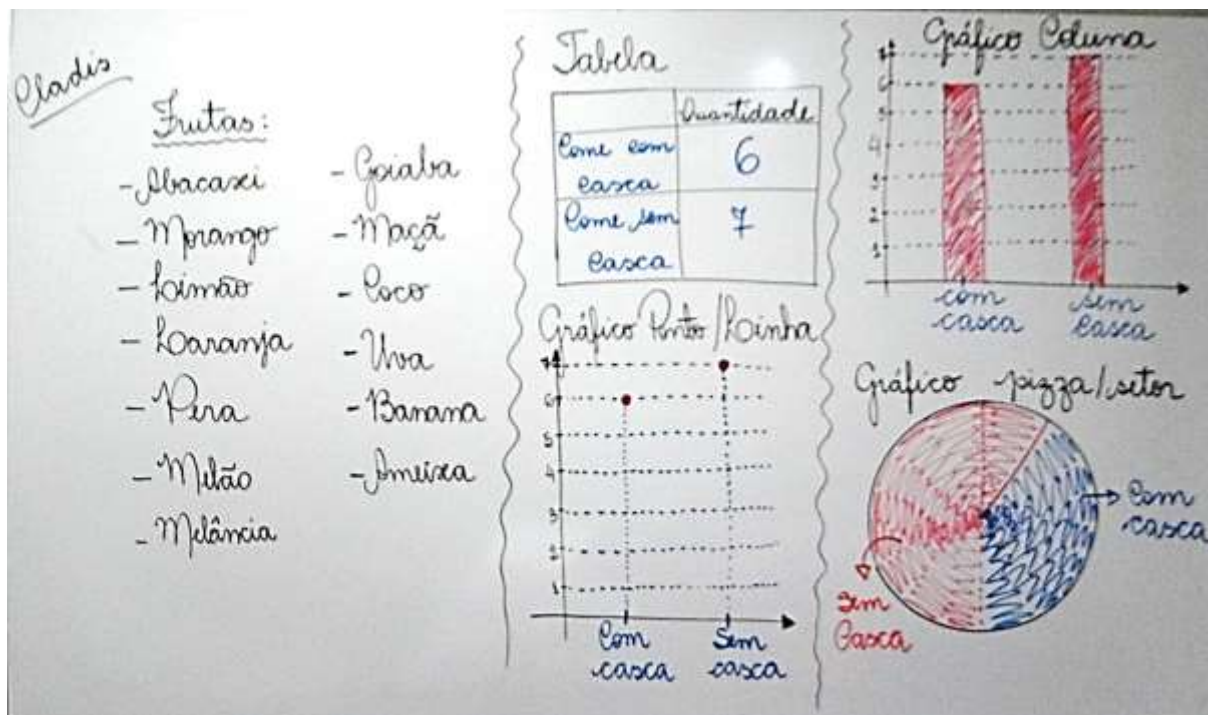 Cladis
Frutas:
- Abacaxi
- Morango
- Limão
- Laranja
- Pera
- Melão
- Melância
- Goiaba
- Maçã
- Coco
- Uva
- Banana
- Ameixa
Tabela
Quantidade
Come com
casca
6
Come sem
casca
7
Gráfico Ponto/Linha
7
6
5
4
3
2
1
Com
casca
Sem
casca
Gráfico Coluna
7
6
5
4
3
2
1
com
casca
sem
casca
Gráfico pizza/setor
Com
casca
Sem
Casca